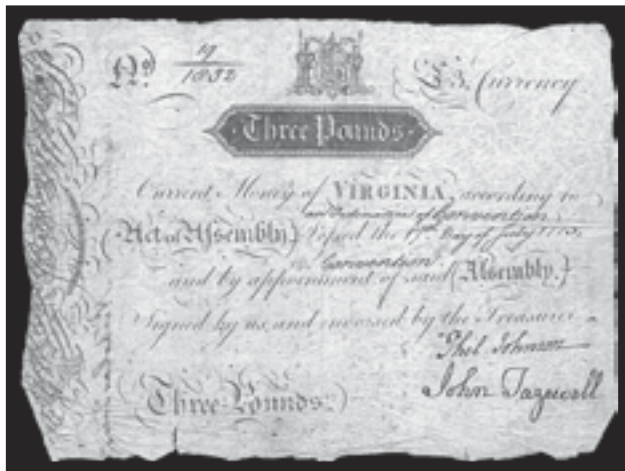 No. 19
1832
£3, Currency
Three Pounds
Current Money of VIRGINIA, according to
an Ordinance of Convention
(Act of Assembly) Passed the 17th Day of July 1775,
Convention
and by appointment of said (Assembly.)
Signed by us, and endorsed by the Treasurer
Phil Johnson
John Tazewell
Three Pounds